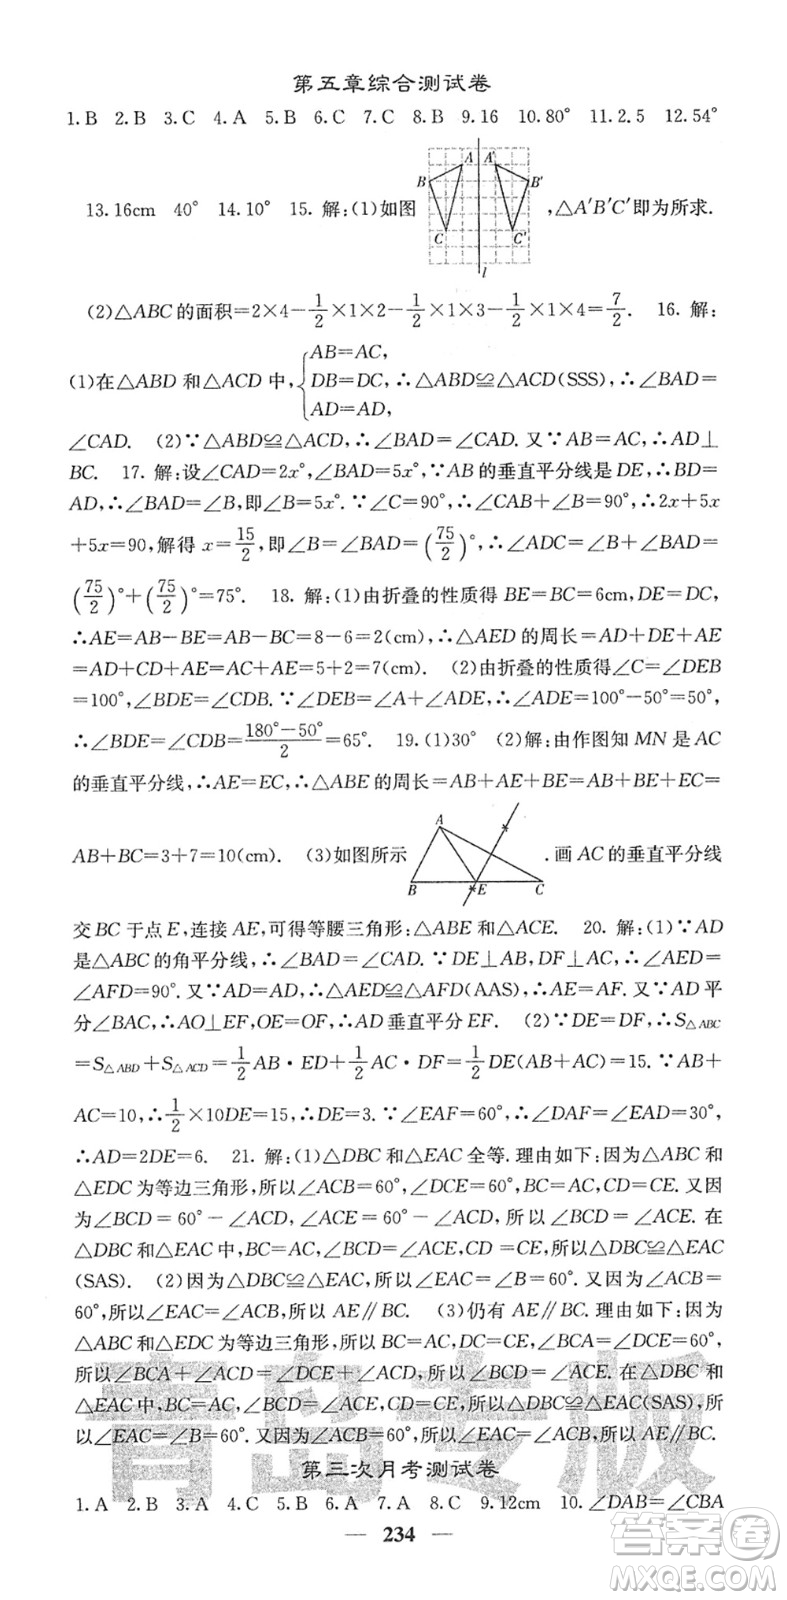 第五章综合测试卷
1.B 2.B 3.C 4.A 5.B 6.C 7.C 8.B 9.16 10.80° 11.2.5 12.54°
13.16cm 40° 14.10° 15. 解:(1)如图 ,△A′B′C′即为所求.
A A′ B B′ C C′ l
(2)△ABC的面积=2×4-1/2×1×2-1/2×1×3-1/2×1×4=7/2. 16. 解:
(1)在△ABD和△ACD中,{AB=AC, DB=DC, AD=AD, ∴△ABD≌△ACD(SSS),∴∠BAD=
∠CAD. (2)∵△ABD≌△ACD,∴∠BAD=∠CAD. 又∵AB=AC,∴AD⊥
BC. 17. 解:设∠CAD=2x°,∠BAD=5x°,∵AB的垂直平分线是DE,∴BD=
AD,∴∠BAD=∠B,即∠B=5x°.∵∠C=90°,∴∠CAB+∠B=90°,∴2x+5x
+5x=90,解得x=15/2,即∠B=∠BAD=(75/2)°,∴∠ADC=∠B+∠BAD=
(75/2)°+(75/2)°=75°. 18. 解:(1)由折叠的性质得BE=BC=6cm,DE=DC,
∴AE=AB-BE=AB-BC=8-6=2(cm),∴△AED的周长=AD+DE+AE
=AD+CD+AE=AC+AE=5+2=7(cm). (2)由折叠的性质得∠C=∠DEB
=100°,∠BDE=∠CDB.∵∠DEB=∠A+∠ADE,∴∠ADE=100°-50°=50°,
∴∠BDE=∠CDB=(180°-50°)/2=65°. 19.(1)30° (2)解:由作图知MN是AC
的垂直平分线,∴AE=EC,∴△ABE的周长=AB+AE+BE=AB+BE+EC=
AB+BC=3+7=10(cm). (3)如图所示 .画AC的垂直平分线
A B E C
交BC于点E,连接AE,可得等腰三角形:△ABE和△ACE. 20. 解:(1)∵AD
是△ABC的角平分线,∴∠BAD=∠CAD.∵DE⊥AB,DF⊥AC,∴∠AED=
∠AFD=90°.又∵AD=AD,∴△AED≌△AFD(AAS),∴AE=AF.又∵AD平
分∠BAC,∴AO⊥EF,OE=OF,∴AD垂直平分EF. (2)∵DE=DF,∴S△ABC
=S△ABD+S△ACD=1/2AB·ED+1/2AC·DF=1/2DE(AB+AC)=15.∵AB+
AC=10,∴1/2×10DE=15,∴DE=3.∵∠EAF=60°,∴∠DAF=∠DAE=30°,
∴AD=2DE=6. 21. 解:(1)△DBC和△EAC全等.理由如下:因为△ABC和
△EDC为等边三角形,所以∠ACB=60°,∠DCE=60°,BC=AC,CD=CE.又因
为∠BCD=60°-∠ACD,∠ACE=60°-∠ACD,所以∠BCD=∠ACE.在
△DBC和△EAC中,BC=AC,∠BCD=∠ACE,CD=CE,所以△DBC≌△EAC
(SAS). (2)因为△DBC≌△EAC,所以∠EAC=∠B=60°.又因为∠ACB=
60°,所以∠EAC=∠ACB,所以AE∥BC. (3)仍有AE∥BC.理由如下:因为
△ABC和△EDC为等边三角形,所以BC=AC,DC=CE,∠BCA=∠DCE=60°,
所以∠BCA+∠ACD=∠DCE+∠ACD,即∠BCD=∠ACE.在△DBC和
△EAC中,BC=AC,∠BCD=∠ACE,CD=CE,所以△DBC≌△EAC(SAS),所
以∠EAC=∠B=60°.又因为∠ACB=60°,所以∠EAC=∠ACB,所以AE∥BC.
青岛专版
第三次月考测试卷
1.A 2.B 3.A 4.C 5.B 6.A 7.A 8.C 9.12cm 10.∠DAB=∠CBA
— 234 —
答案圈
MXQE.COM